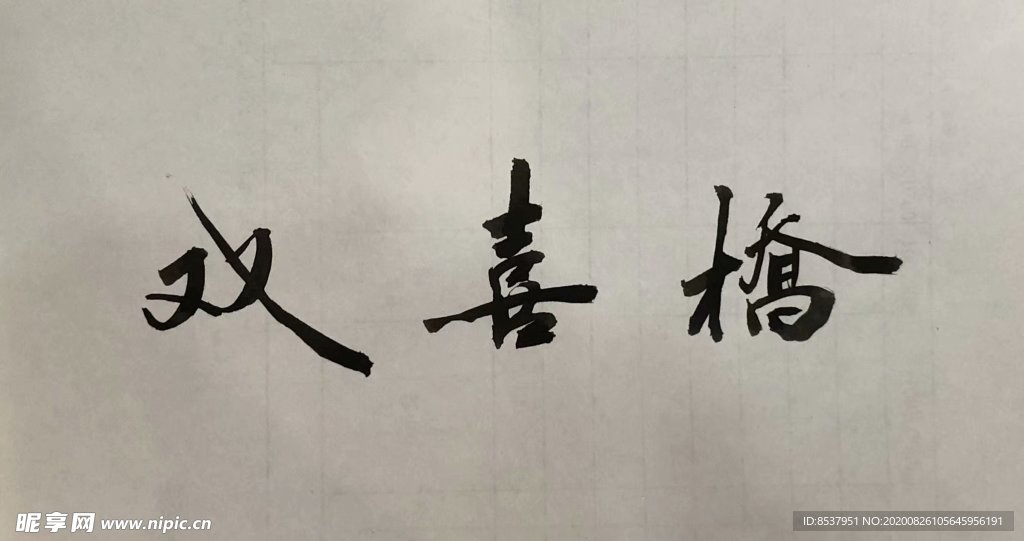 双喜橋
昵享网 www.nipic.cn
ID:8537951 NO:20200826105645956191